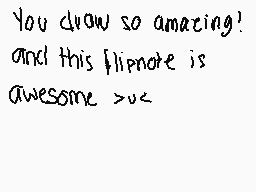 You draw so amazing!
and this flipnote is
awesome >u<